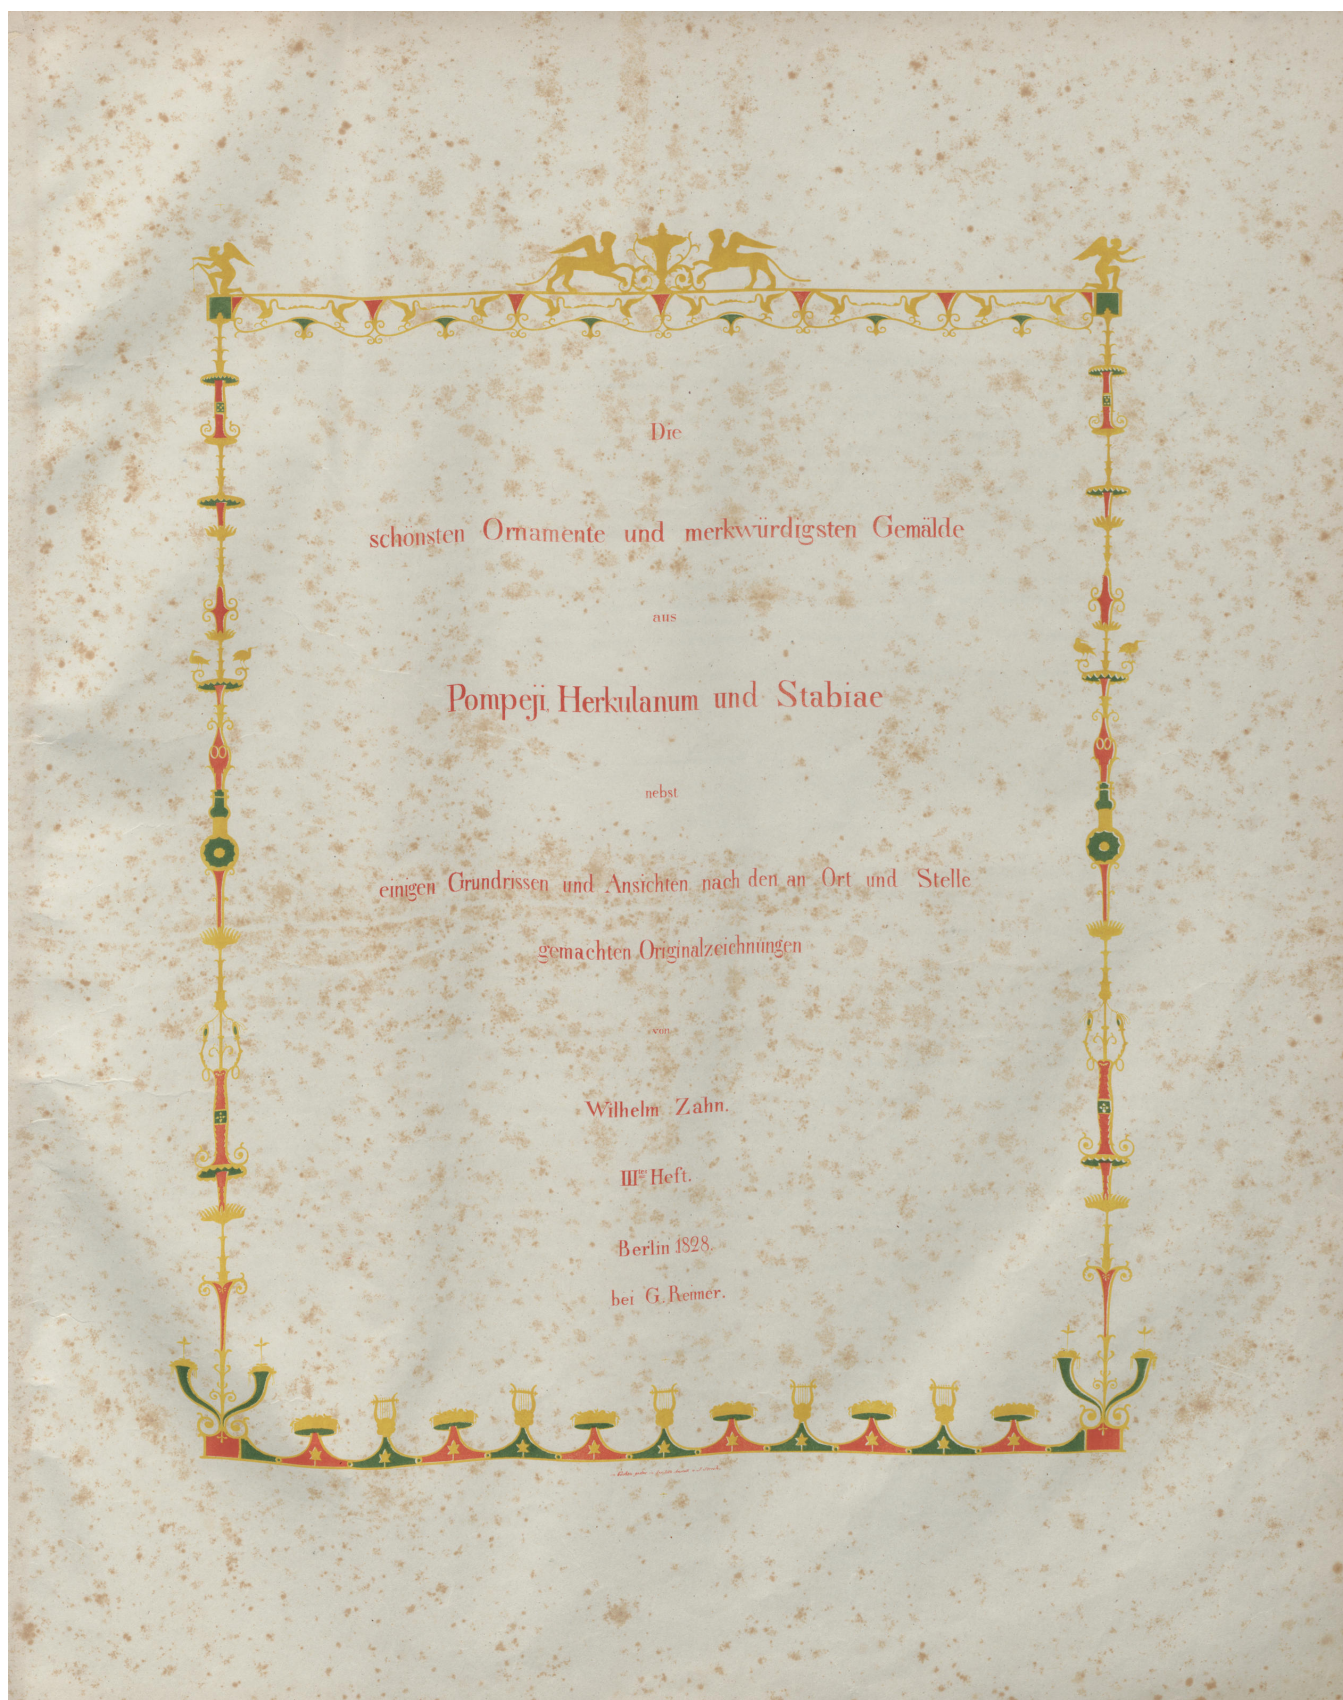 Die
schönsten Ornamente und merkwürdigsten Gemälde
aus
Pompeji, Herkulanum und Stabiae
nebst
einigen Grundrissen und Ansichten nach den an Ort und Stelle
gemachten Originalzeichnungen
von
Wilhelm Zahn.
IIItes Heft.
Berlin 1828.
bei G. Reimer.